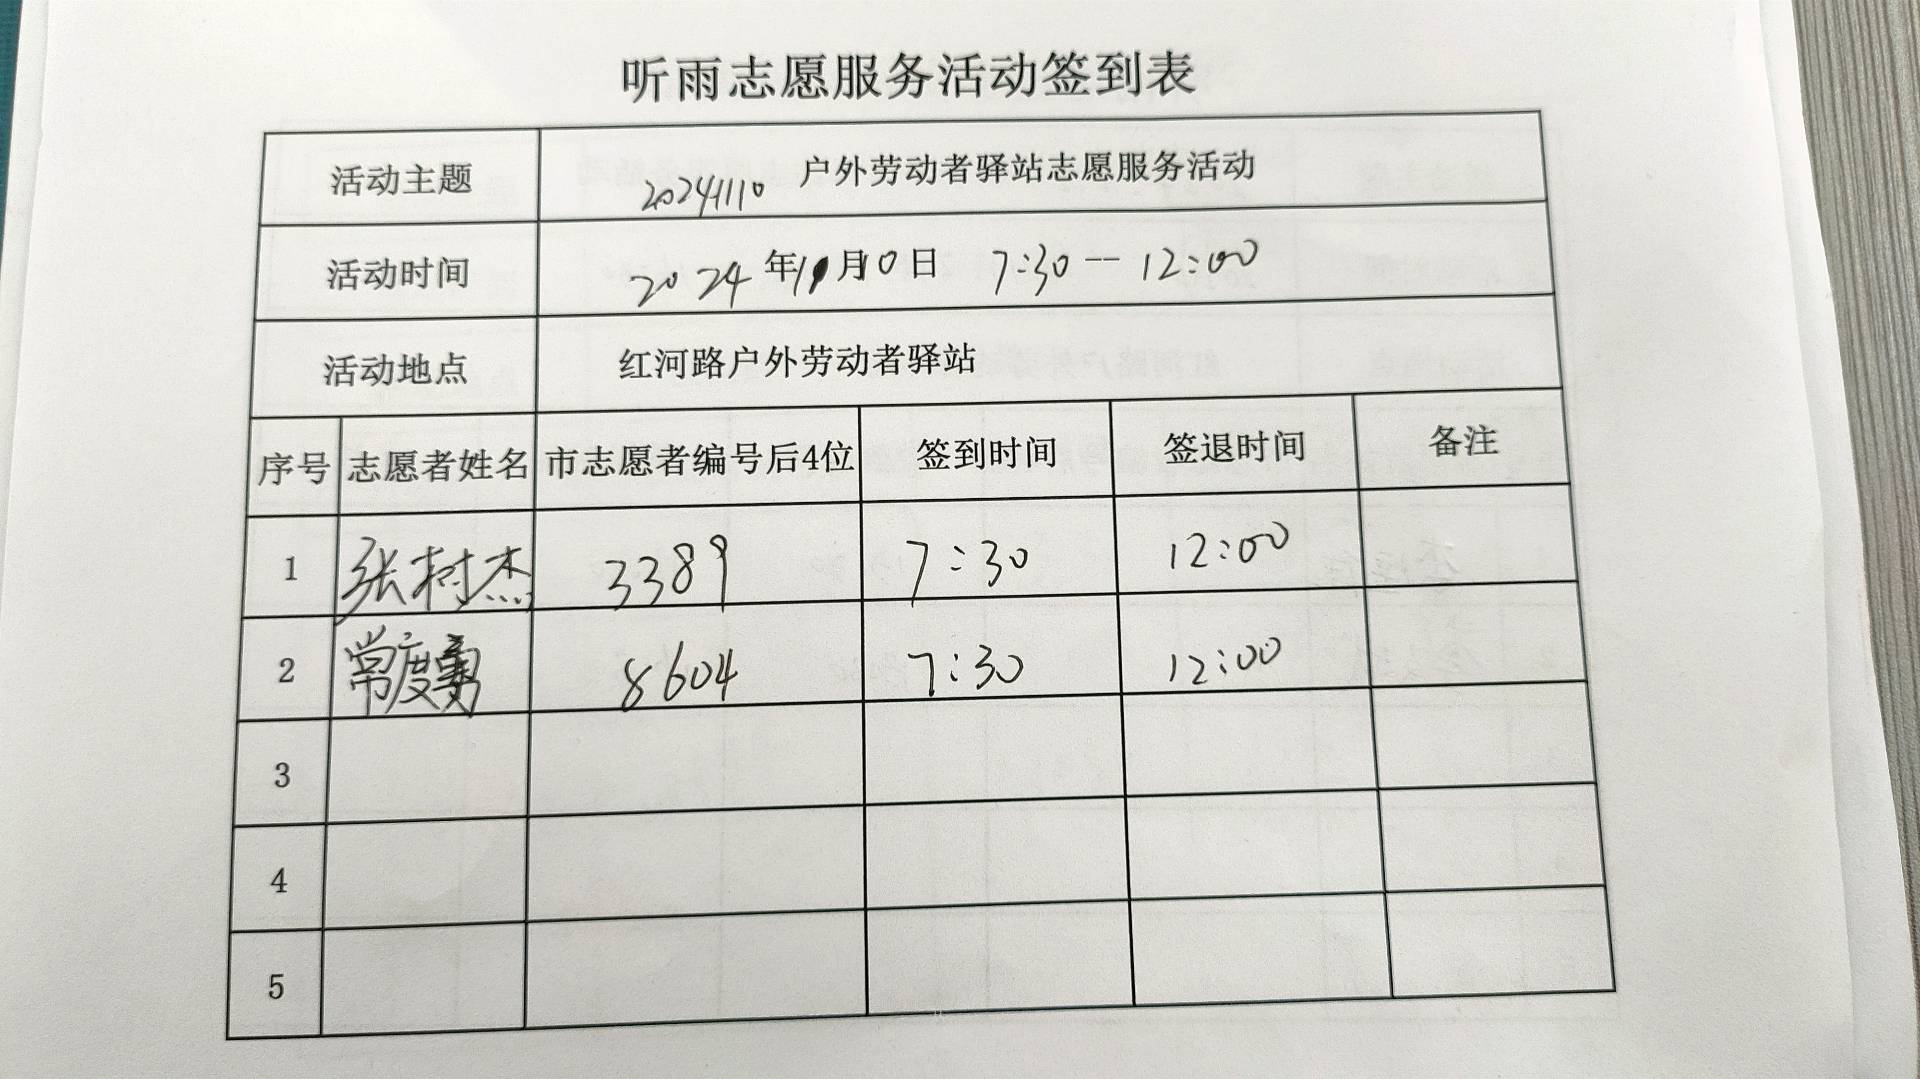 听雨志愿服务活动签到表
活动主题 20241110 户外劳动者驿站志愿服务活动
活动时间 2024年11月10日 7:30--12:00
活动地点 红河路户外劳动者驿站
序号 志愿者姓名 市志愿者编号后4位 签到时间 签退时间 备注
1 张树杰 3389 7:30 12:00
2 常度勇 8604 7:30 12:00
3
4
5